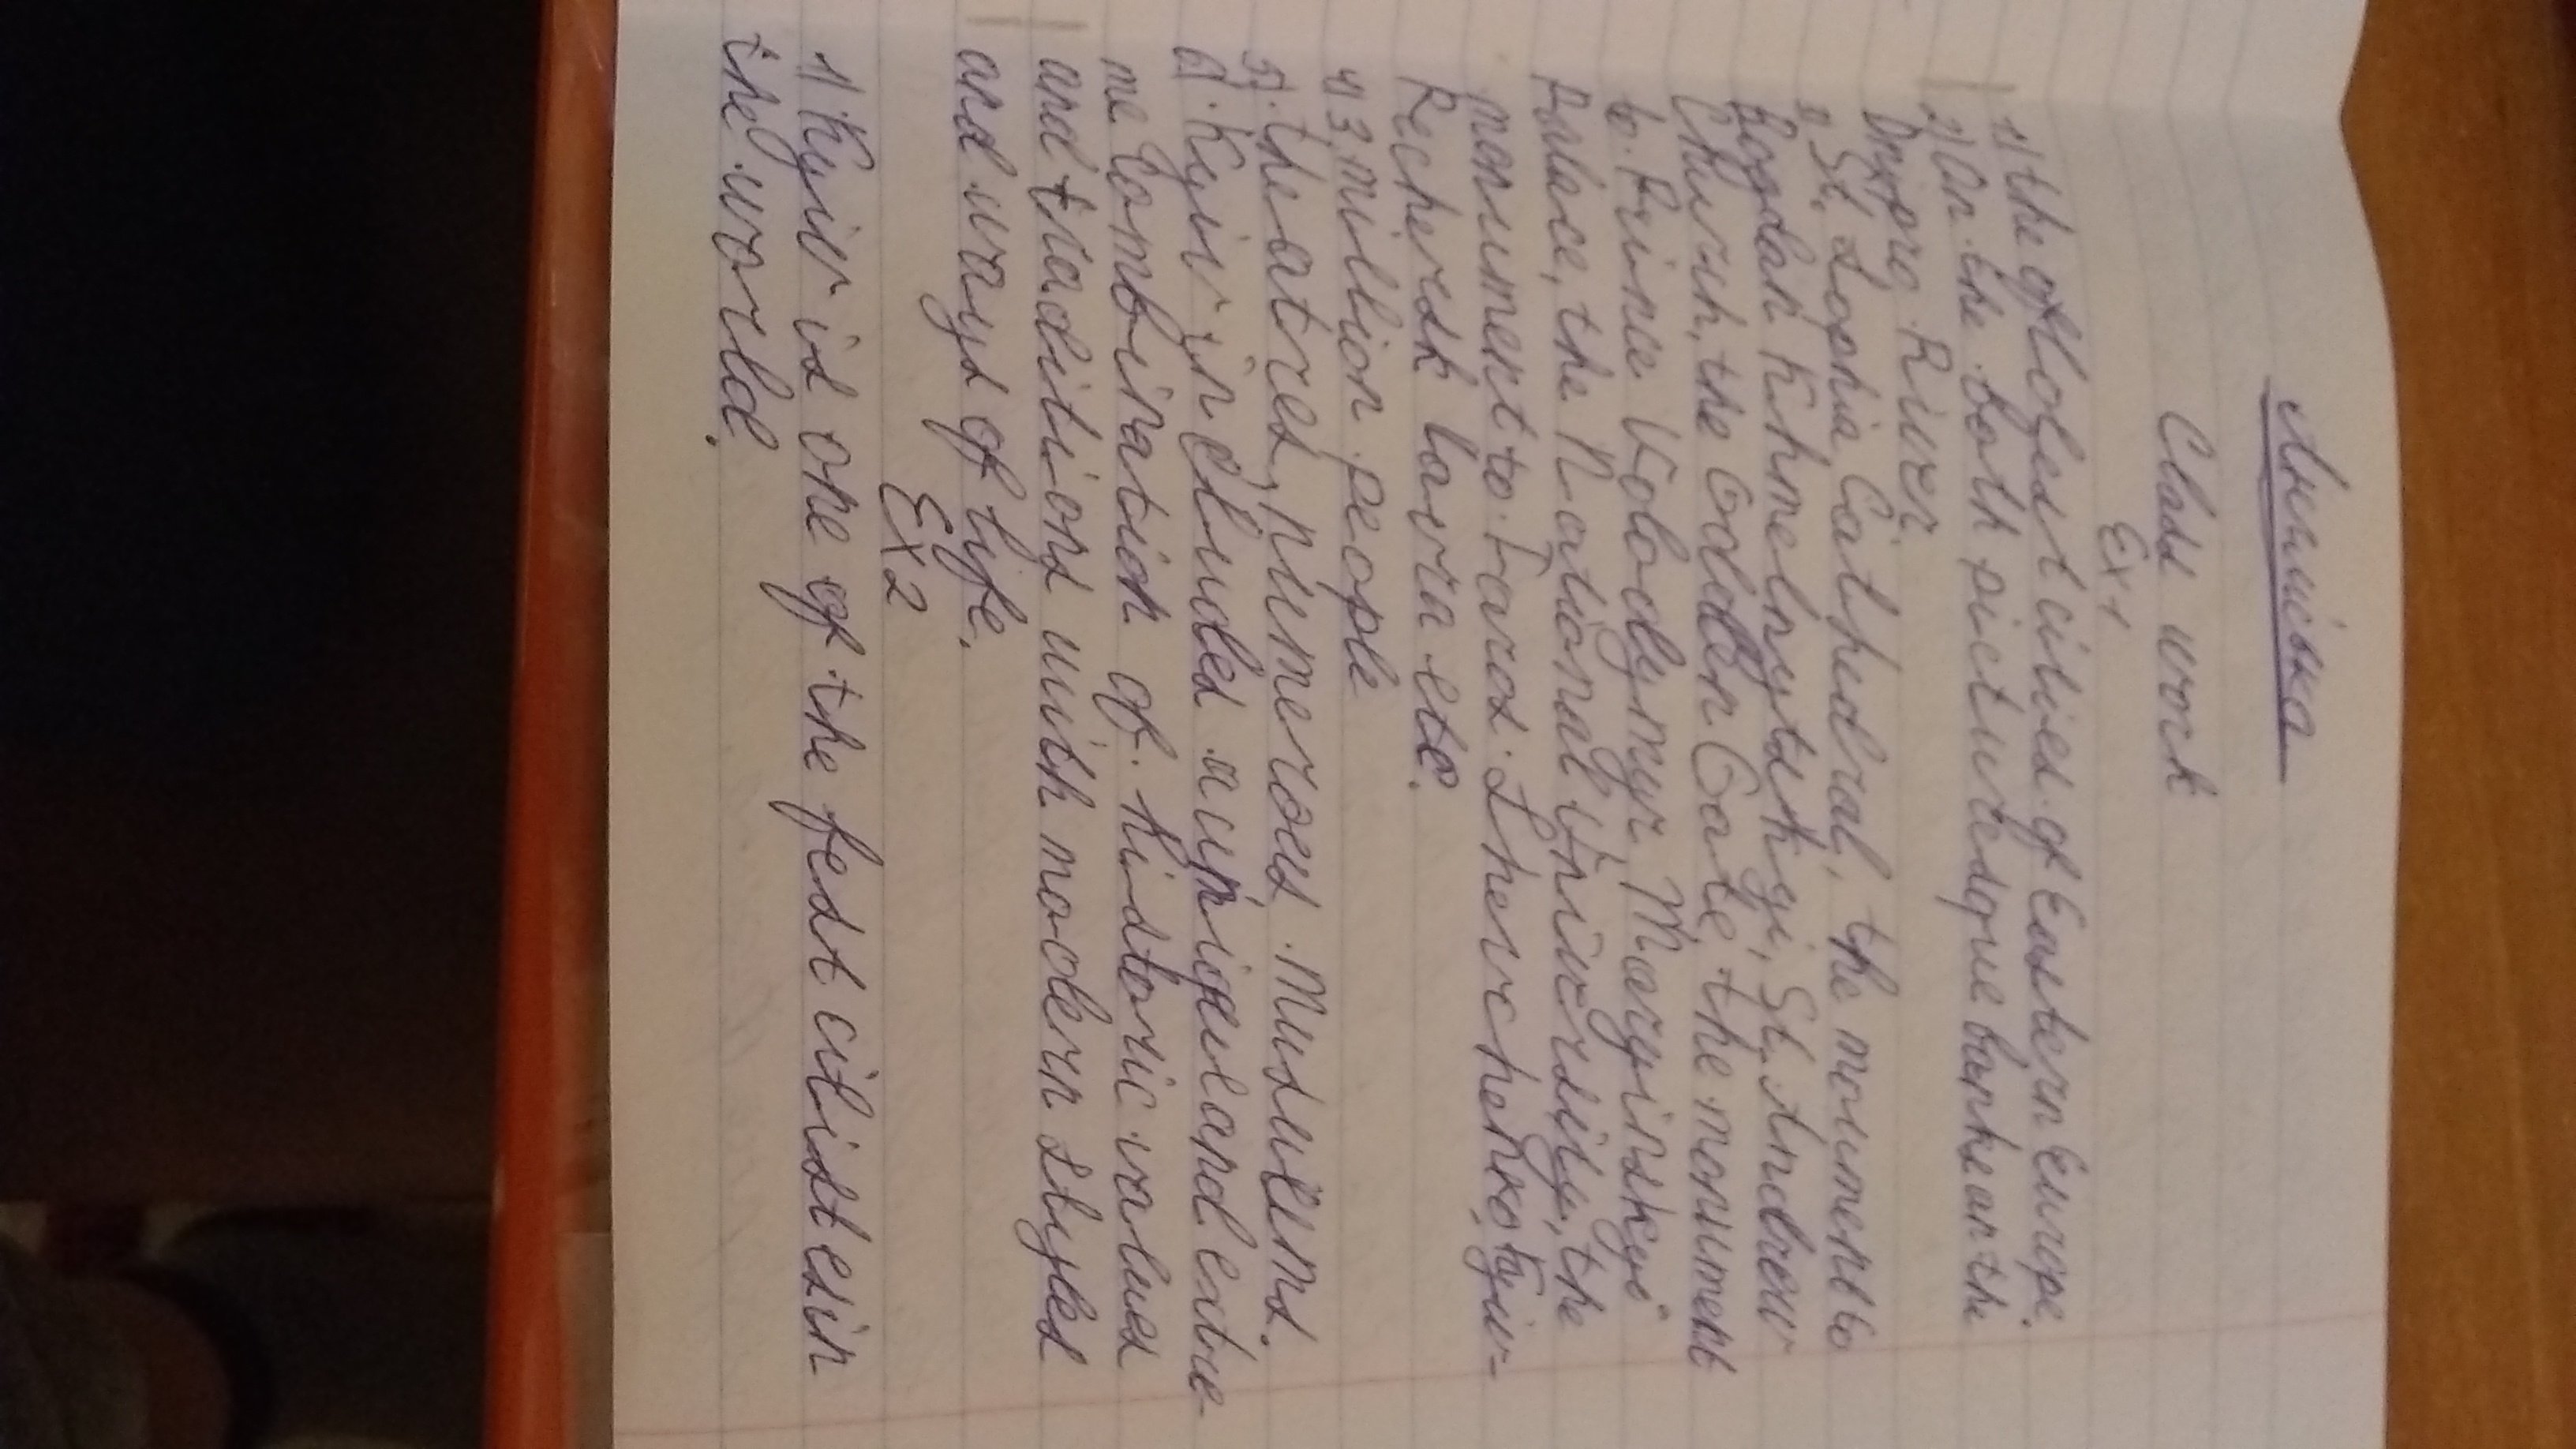 Англійська
Class work
Ex 1
1) the oldest cities of Eastern Europe.
2) On the both picturesque banks on the
Dnipro River.
3. St. Sophia Cathedral, the monument to
Bogdan Khmelnytskyi, St. Andrew
Church, the Golden Gate, the monument
to Prince Volodymyr, Maryinskyi
Palace, the National University, the
monument to Taras Shevchenko, Kyiv-
Pechersk Lavra etc.
4) 3 million people
5). theatres, numeroes museums.
6). Kyiv includes and extre-
me combination of historic values
and traditions with modern styles
and ways of life.
Ex 2
1) Kyiv is one of the fest citist es in
the world.